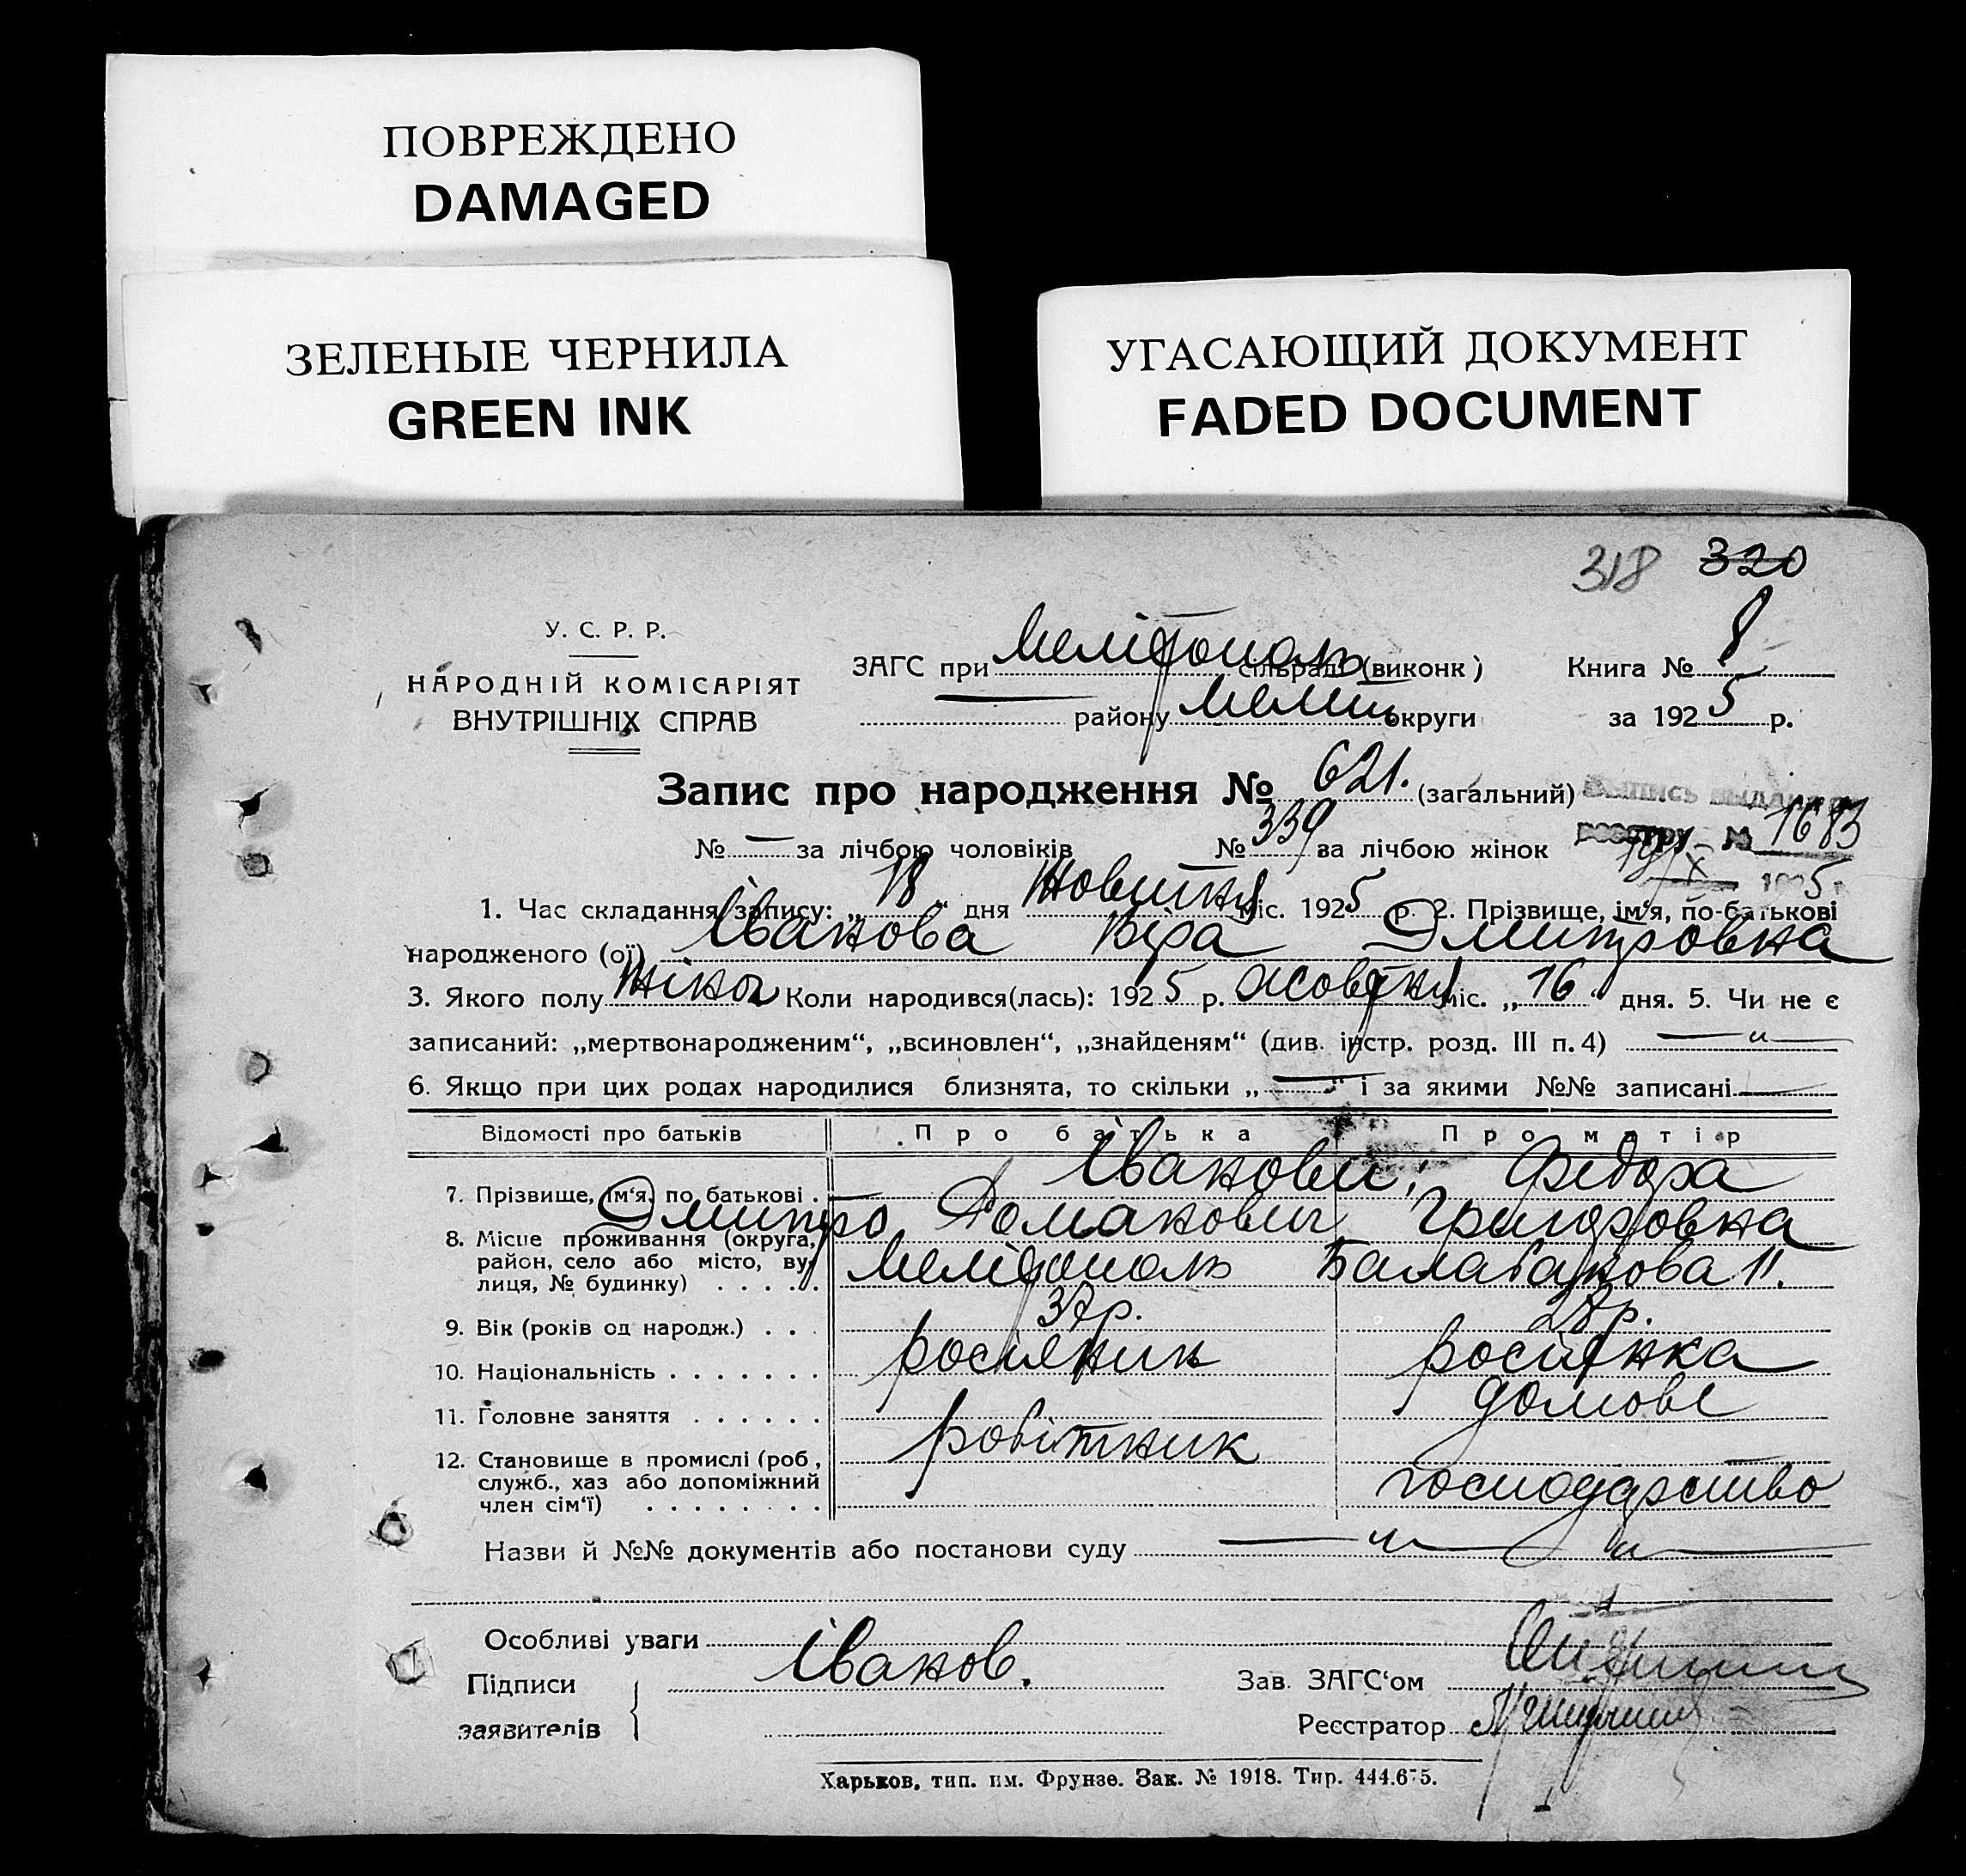 ПОВРЕЖДЕНО
DAMAGED
ЗЕЛЕНЫЕ ЧЕРНИЛА
GREEN INK
УГАСАЮЩИЙ ДОКУМЕНТ
FADED DOCUMENT
318 320
У. С. Р. Р.
НАРОДНІЙ КОМІСАРІЯТ
ВНУТРІШНІХ СПРАВ
ЗАГС при Мелітополь сільраді (виконк)
району Меліт округи
Книга № 8
за 1925 р.
Запис про народження № 621. (загальний)
№ — за лічбою чоловіків № 339 за лічбою жінок
Выпись выдана
реестру № 1683
1925 г
1. Час складання запису: „18“ дня Жовтня міс. 1925 р. 2. Прізвище, ім‘я, по-батькові
народженого (ої) Іванова Віра Дмитровна
3. Якого полу жіноч Коли народився(лась): 1925 р. жовтня міс. „16“ дня. 5. Чи не є
записаний: „мертвонародженим“, „всиновлен“, „знайденям“ (див. інстр. розд. III п. 4) — „ —
6. Якщо при цих родах народилися близнята, то скільки „—“ і за якими №№ записані —
Відомості про батьків Про батька Про матір
7. Прізвище, ім‘я, по батькові . Іванови; Федора
Дмитро Романович Григоровна
8. Місце проживання (округа,
район, село або місто, ву-
лиця, № будинку) . . . . . Мелітополь Балабанова 11.
9. Вік (років од народж.) . . . 37р. 28р.
10. Національність . . . . . . . росіянин росіянка
11. Головне заняття . . . . . . робітник домове
12. Становище в промислі (роб,
служб., хаз або допоміжний
член сім‘ї) . . . . . . . . господарство
Назви й №№ документів або постанови суду — „ — „ —
Особливі уваги
Підписи
заявителів
Іванов.
Зав. ЗАГС‘ом
Реєстратор
Харьков, тип. им. Фрунзе. Зак. № 1918. Тир. 444.675.